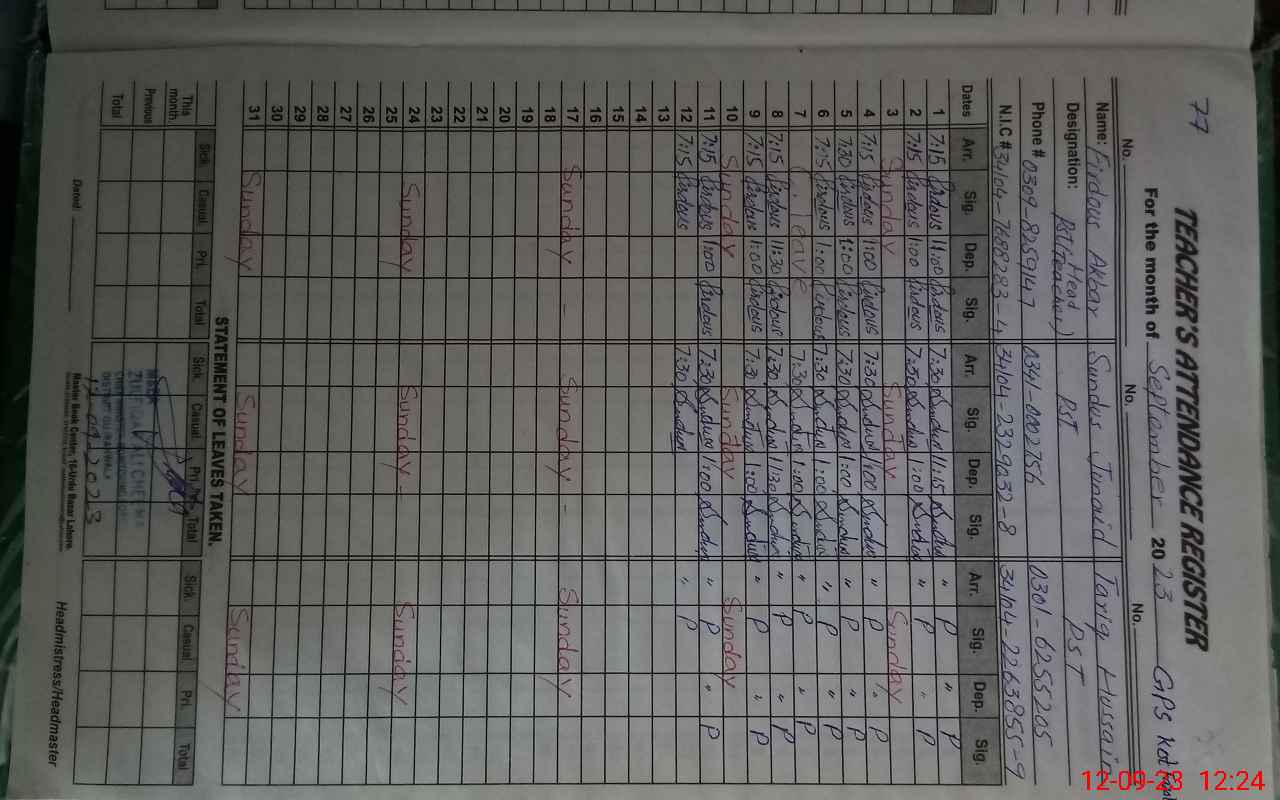 77
TEACHER'S ATTENDANCE REGISTER
For the month of September 2023 GPS Kot
No. No. No.
Name: Firdous Akbar Sundus Junaid Tariq Hussain
Designation: PST (Head Teacher) PST PST
Phone # 0309-8259147 0341-0002756 0301-6255205
N.I.C # 34104-7688283-4 34104-2329232-8 34104-2263855-9
Dates Arr. Sig. Dep. Sig. Arr. Sig. Dep. Sig. Arr. Sig. Dep. Sig.
1 7:15 Firdous 11:00 Firdous 7:30 Sundus 11:15 Sundus " P " P
2 7:15 Firdous 1:00 Firdous 7:30 Sundus 1:00 Sundus " P " P
3 Sunday Sunday Sunday
4 7:15 Firdous 1:00 Firdous 7:30 Sundus 1:00 Sundus " P " P
5 7:30 Firdous 1:00 Firdous 7:30 Sundus 1:00 Sundus " P " P
6 7:15 Firdous 1:00 Firdous 7:30 Sundus 1:00 Sundus " P " P
7 leave 7:30 Sundus 1:00 Sundus " P " P
8 7:15 Firdous 11:30 Firdous 7:30 Sundus 11:30 Sundus " P " P
9 7:15 Firdous 1:00 Firdous 7:30 Sundus 1:00 Sundus " P " P
10 Sunday Sunday Sunday
11 7:15 Firdous 1:00 Firdous 7:30 Sundus 1:00 Sundus " P " P
12 7:15 Firdous 7:30 Sundus " P
13
14
15
16
17 Sunday - Sunday - Sunday
18
19
20
21
22
23
24 Sunday Sunday - Sunday
25
26
27
28
29
30
31 Sunday Sunday Sunday
STATEMENT OF LEAVES TAKEN.
Sick. Casual. Pri. Total Sick. Casual. Pri. Total Sick. Casual. Pri. Total
This month.
Previous
Total
Dated:
Master Book Center, 16-Urdu Bazar Lahore.
Headmistress/Headmaster
12-09-23 12:24